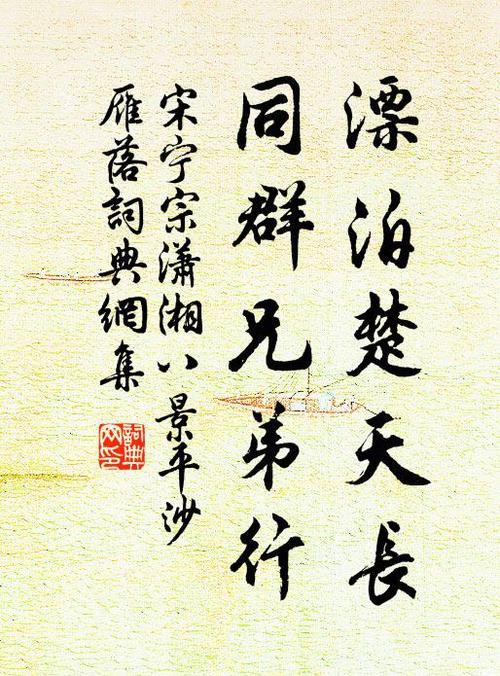 漂泊楚天长
同群兄弟行
宋宁宗潇湘八景平沙
雁落詞典網集
詞典
网印